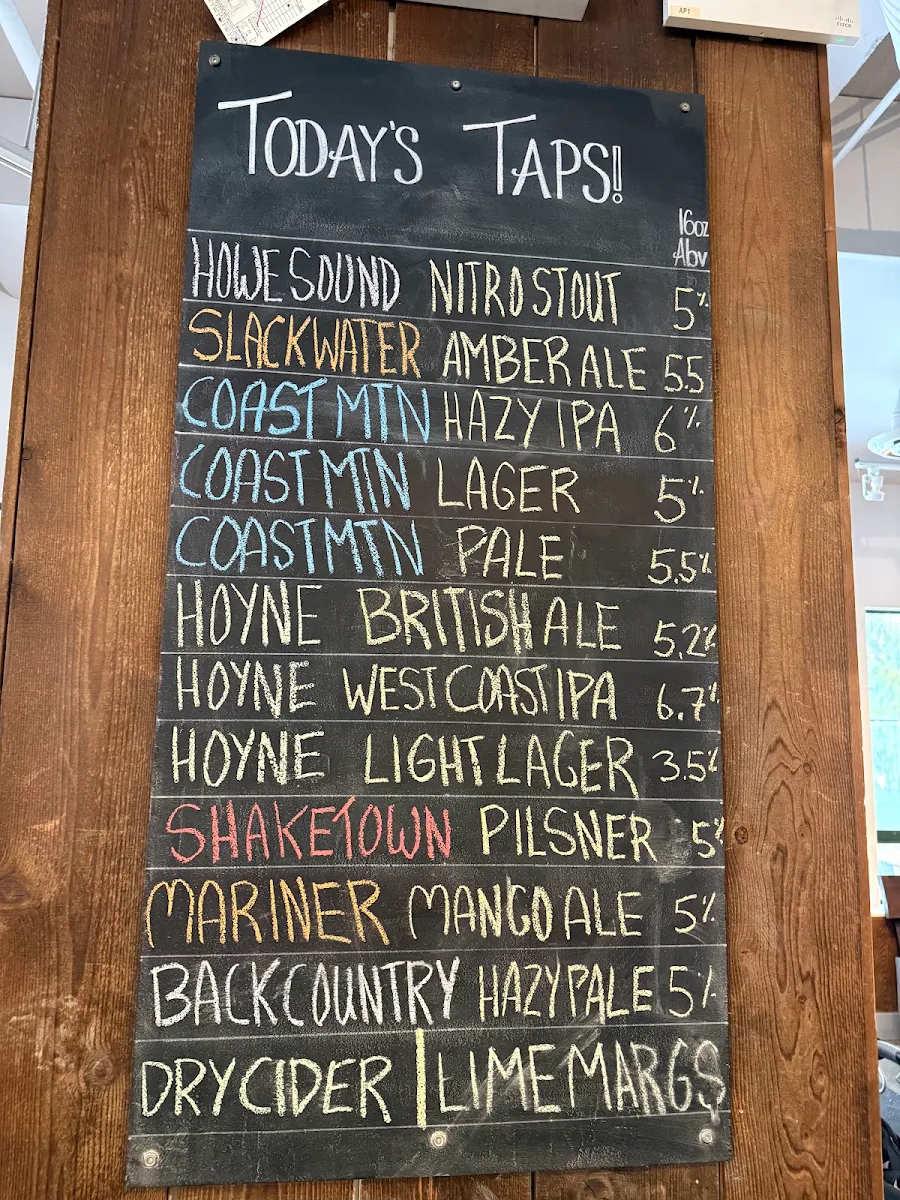 AP1
cisco
TODAY'S TAPS!
16oz
Abv
HOWE SOUND NITRO STOUT 5%
SLACKWATER AMBER ALE 5.5
COAST MTN HAZY IPA 6%
COAST MTN LAGER 5%
COAST MTN PALE 5.5%
HOYNE BRITISH ALE 5.2%
HOYNE WEST COAST IPA 6.7%
HOYNE LIGHT LAGER 3.5%
SHAKETOWN PILSNER 5%
MARINER MANGO ALE 5%
BACKCOUNTRY HAZY PALE 5%
DRY CIDER | LIME MARGS